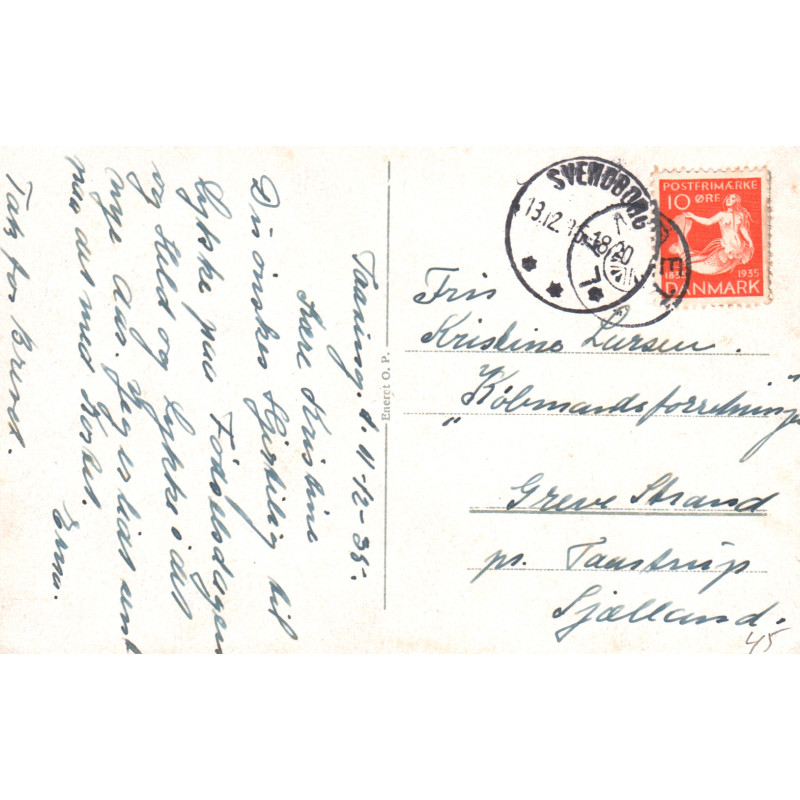 d. 11-12-35.
Kære Kristine
Du ønskes Hjertelig til
Lykke paa Fødselsdagen
og Held og Lykke i det
nye Aar. Jeg er lidt sent
paa det med Kortet.
Erna.
Tak for Brevet.
Eneret O. P.
SVENDBORG
13.12.35-18
POSTFRIMÆRKE
10 ØRE
1835 1935
DANMARK
Frk
Kristine Larsen.
"Købmandsforretning"
Greve Strand
pr. Taastrup
Sjælland.
45